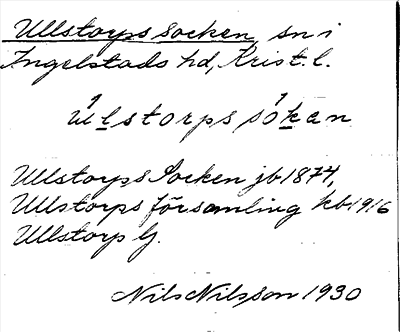 Ullstorps socken, sn i
Ingelstads hd, Krist. l.
úlstorps sókan
Ullstorps Socken jb 1874,
Ullstorps församling kb 1916
Ullstorp G.
Nils Nilsson 1930